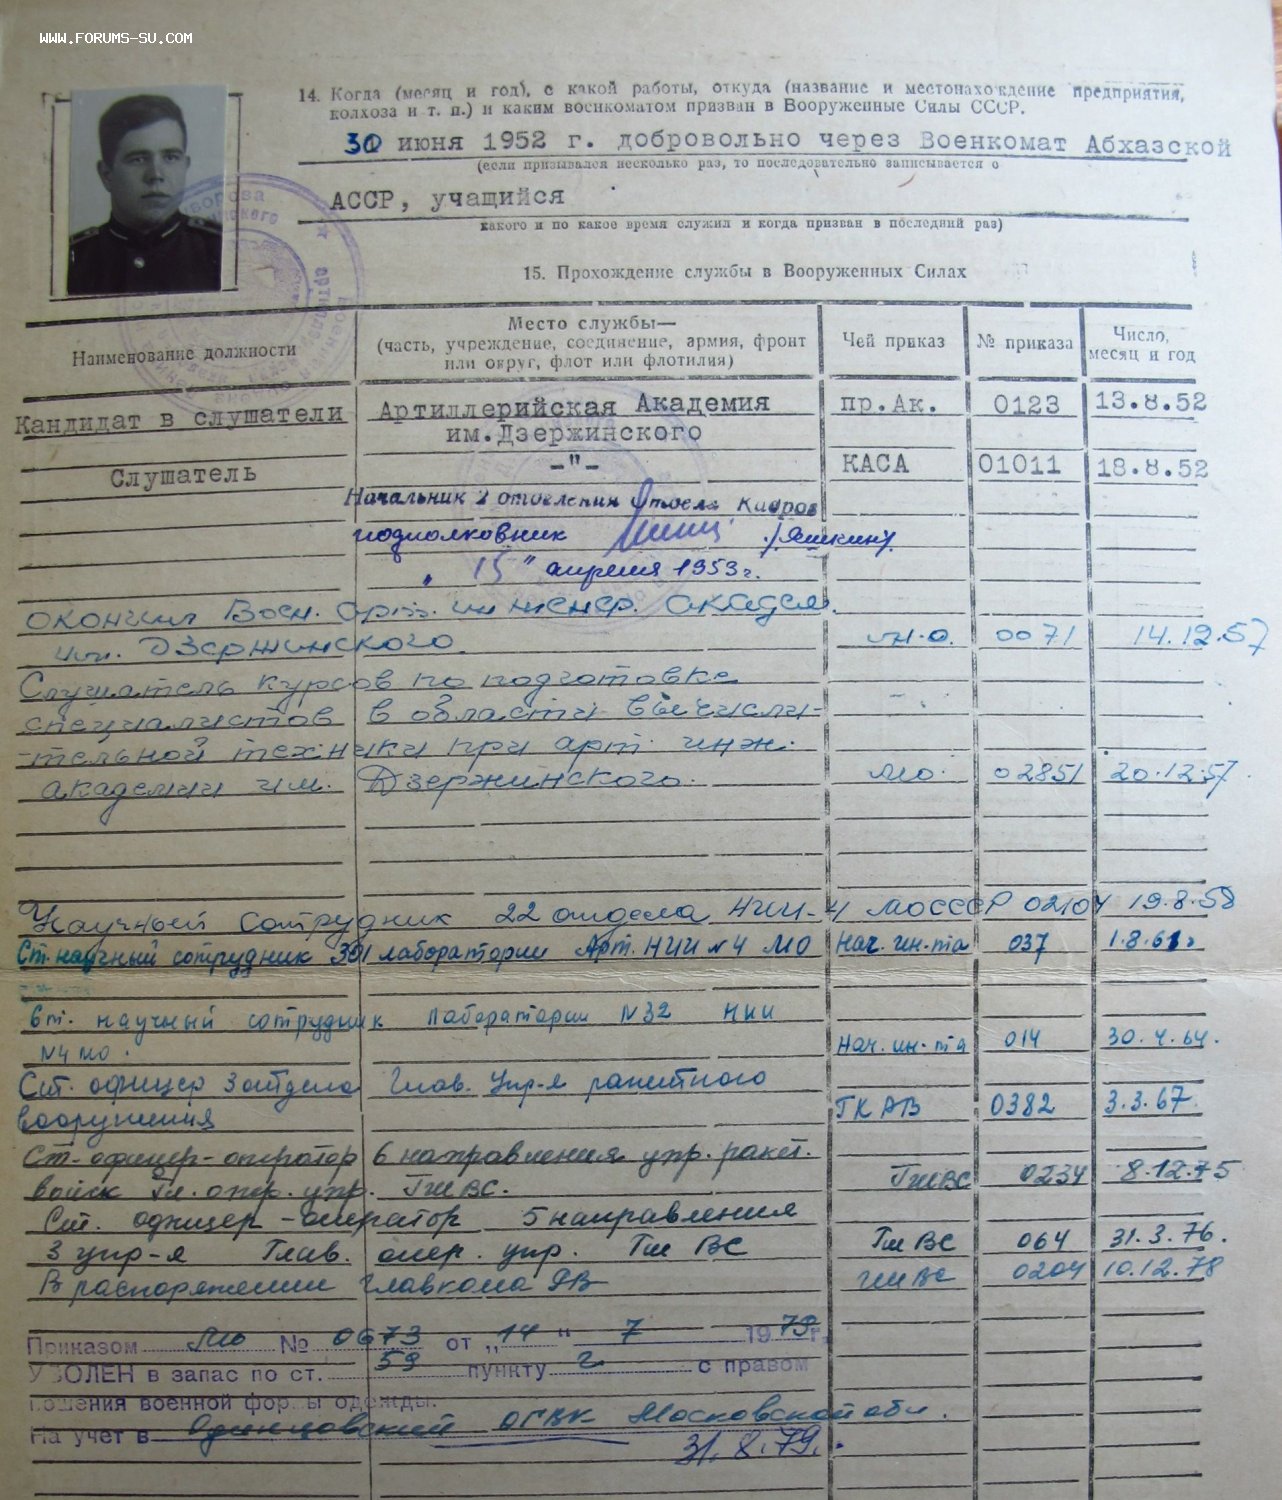 WWW.FORUMS-SU.COM
14. Когда (месяц и год), с какой работы, откуда (название и местонахождение предприятия,
колхоза и т. п.) и каким военкоматом призван в Вооруженные Силы СССР.
30 июня 1952 г. добровольно через Военкомат Абхазской
(если призывался несколько раз, то последовательно записывается с
АССР, учащийся
какого и по какое время служил и когда призван в последний раз)
15. Прохождение службы в Вооруженных Силах
Наименование должности
Место службы—
(часть, учреждение, соединение, армия, фронт
или округ, флот или флотилия)
Чей приказ
№ приказа
Число,
месяц и год
Кандидат в слушатели Артиллерийская Академия пр.Ак. 0123 13.8.52
им.Дзержинского
Слушатель -"- КАСА 01011 18.8.52
Начальник 2 отделения Отдела Кадров
подполковник /Яшкин/
" 15 " апреля 1953г.
окончил Воен. арт. инженер. академ.
им. Дзержинского м.о. 0071 14.12.57
Слушатель курсов по подготовке
специалистов в области вычисли-
-тельной техники при арт. инж.
академии им. Дзержинского. МО. 02851 20.12.57.
Научный сотрудник 22 отдела НИИ-4 МО СССР 02104 19.8.58
Ст. научный сотрудник 301 лаборатории Арт. НИИ №4 МО Нач. ин-та 037 1.8.61г
Ст. научный сотрудник лаборатории №32 НИИ
№4 МО. Нач. ин-та 014 30.4.64.
Ст. офицер 3 отдела Глав. Упр-я ракетного
вооружения ГКРВ 0382 3.3.67.
Ст.-офицер-оператор 6 направления упр. ракет.
войск Гл. опер. упр. ГШВС. ГШВС 0234 8.12.75
Ст. офицер-оператор 5 направления
3 упр-я Глав. опер. упр. ГШ ВС ГШ ВС 064 31.3.76.
В распоряжении Главкома РВ ГШВС 0204 10.12.78
Приказом МО № 0673 от „14" 7 1979г.
УВОЛЕН в запас по ст. 59 пункту г с правом
ношения военной формы одежды.
На учет в Одинцовский ОГВК Московской обл.
31.8.79.